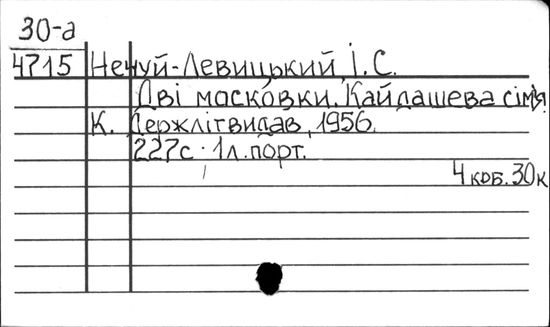 30-а
4715 Нечуй-Левицький І.С.
Дві московки. Кайдашева сім'я.
К. Держлітвидав, 1956.
227с. 1л.порт.
4 крб. 30к